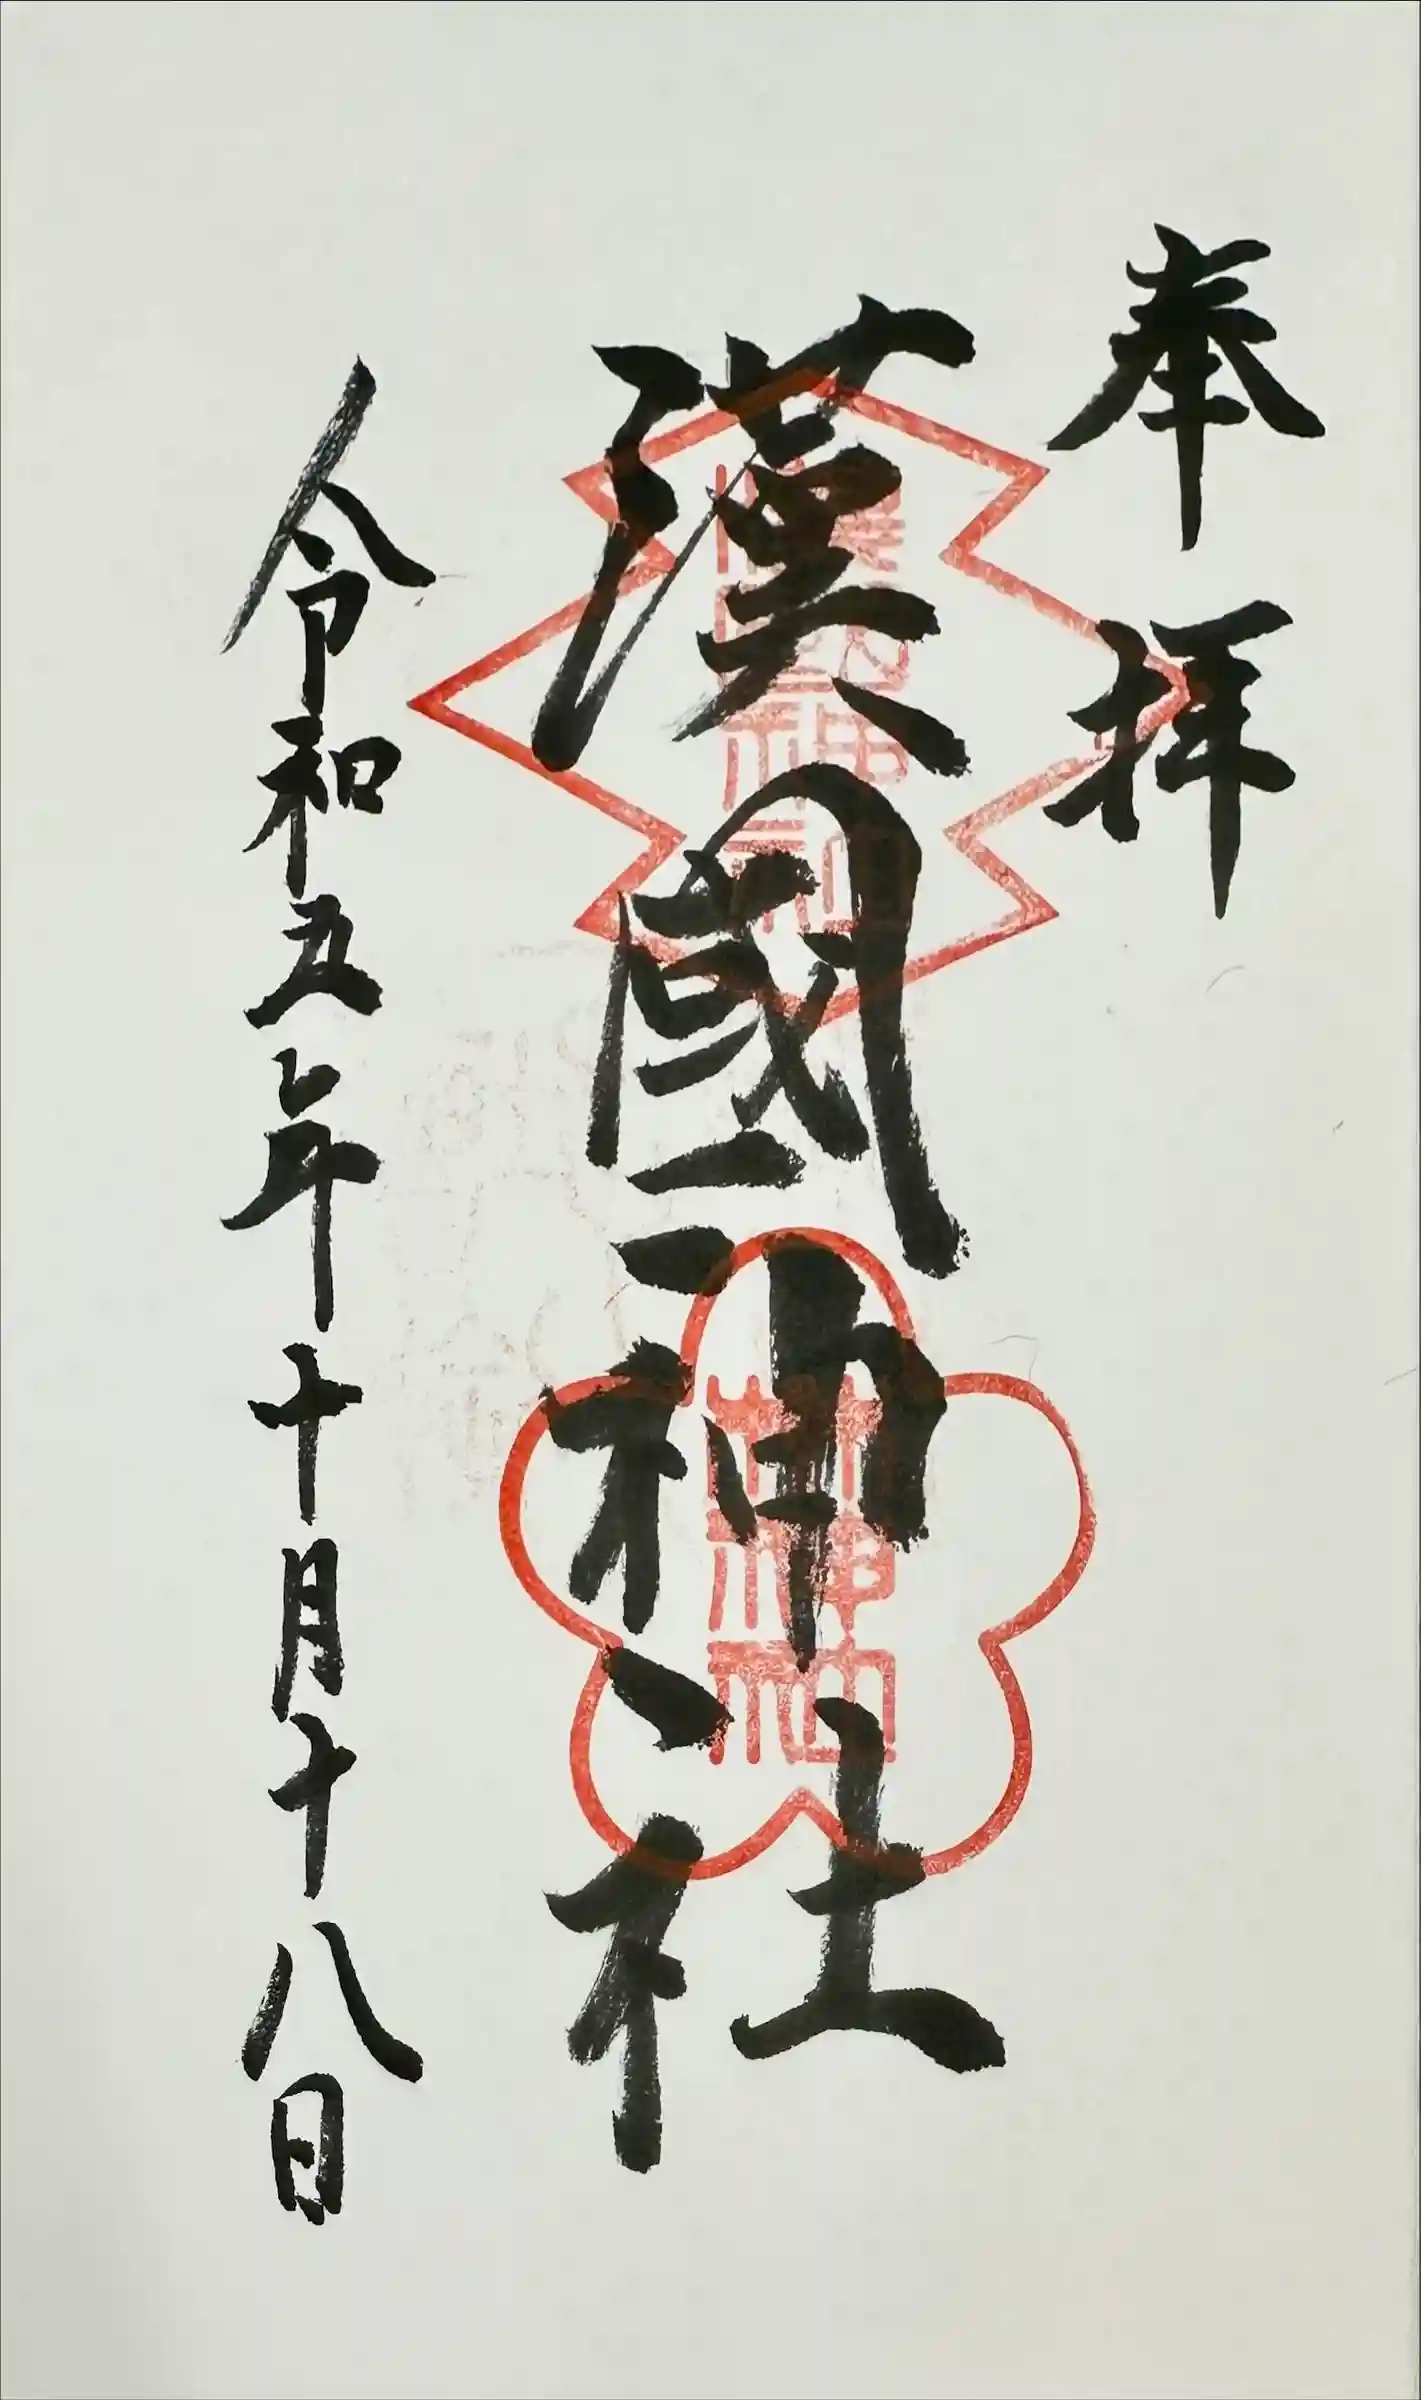 奉拝
漢國神社
令和五年十月十八日